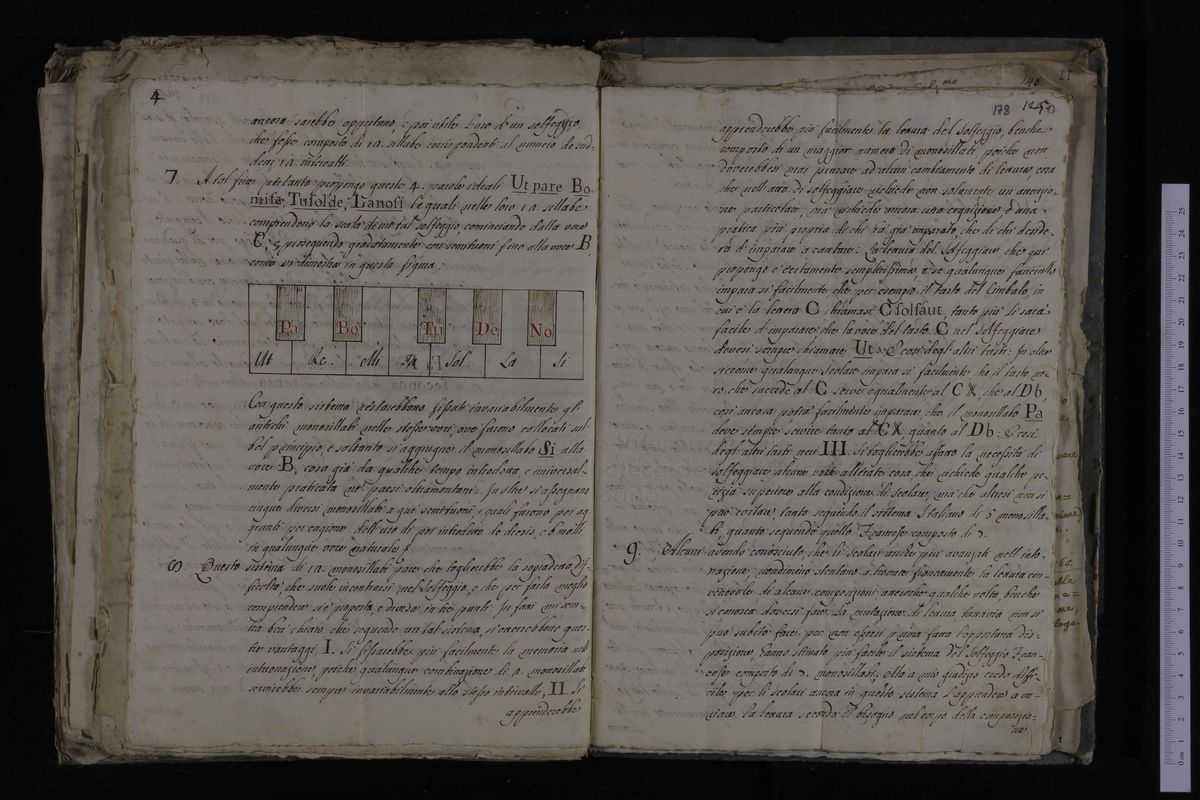 4
ancora sarebbe opportuno e poi utile l'uso d'un solfeggio,
che fosse composto di 12. sillabe corrispondenti al numero de sud:
detti 12.
7. A tal fine pertanto propongo queste 4. parole ideali Ut pare Bo
mifa, Tusolde, Lanosi le quali nelle loro 12. sillabe
comprendono la scala di un tal solfeggio, cominciando dalla voce
C, e proseguendo gradatamente con semituoni fino alla voce B,
come si dimostra in questa figura.
Pa Bo Tu De No
Ut Re Mi Fa Sol La Si
Con questo sistema resterebbono fissati invariabilmente gli
antichi monosillabi nelle stesse voci, ove furono collocati sul
bel principio, e soltanto si aggiugne il monosillabo Si alla
voce B, cosa già da qualche tempo introdotta, e universal-
mente praticata ne' paesi oltramontani: In oltre si assegnano
cinque diversi monosillabi a que' semituoni, i quali furono poi ag
giunti per cagione dell'uso di poi introdotto de diesis, e b molli
in qualunque voce naturale
8. Questo sistema di 12. monosillabi pare che toglierebbe la sopradetta dif-
ficoltà, che suole incontrarsi nel solfeggio, e che per farla meglio
comprendere si è proposta, e divisa in tre punti. In fatti mi sem-
bra ben chiaro che seguendo un tal sistema, si otterrebbero ques-
ti vantaggi, I. Si fisserebbe più facilmente la memoria nell'
intuonazione, poiche qualunque combinazione di 2. monosillabi
servirebbe sempre invariabilmente allo stesso intervallo, II. Si
apprenderebbe
II
140
178 125
apprenderebbe più facilmente la lettura del solfeggio, benche
composto di un maggior numero di monosillabi poiche non
dovrebbesi mai pensare ad alcun cambiamento di lettura, cosa
che nell'atto di solfeggiare richiede non solamente un attenzio-
ne particolare, ma richiede ancora una cognizione, e una
pratica più propria di chi ha già imparato, che di chi deside-
ra d'imparare a cantare: La lettura del Solfeggiare, che qui
propongo è certamente semplicissima, e se qualunque fanciullo
impara si facilmente che per esempio il tasto del Cimbalo, in
cui è la lettera C chiamasi C solfaut, tanto più li sarà
facile d'imparare che la voce del tasto C nel solfeggiare
devesi sempre chiamare Ut, e così degl'altri tasti: In oltre
siccome qualunque scolare impara si facilmente che il tasto ne-
ro, che succede al C serve egualmente al C X, che al Db,
così ancora potrà facilmente imparare, che il monosillabo Pa
deve sempre servire tanto al CX quanto al Db: e così
degl'altri tasti neri III. Si toglierebbe affatto la necessità di
solfeggiare alcune voci alterate cosa che richiede qualche pe-
rizia superiore alla condizione di scolare, ma che altresì non si
può evitare, tanto seguendo il sistema Italiano di 6 monosilla-
bi, quanto seguendo quello Francese composto di 7.
9. Alcuni avendo conosciuto che li scolari anche più avanzati nell'into-
nazione, nondimeno stentano a trovare francamente la lettura con-
venevole di alcune composizioni, ancorche qualche volta benche
si conosca doversi fare la mutazione di lettura tuttavia non si
può subito fare per non essersi prima fatta l'opportuna dis-
posizione, hanno stimato più facile il sistema del Solfeggio Fran-
cese composto di 7. monosillabi: Ma a mio giudizio credo diffi-
cile per li scolari ancora in questo sistema l'apprendere a va-
riare la lettura secondo il bisogno nel corpo della composizio:
ne